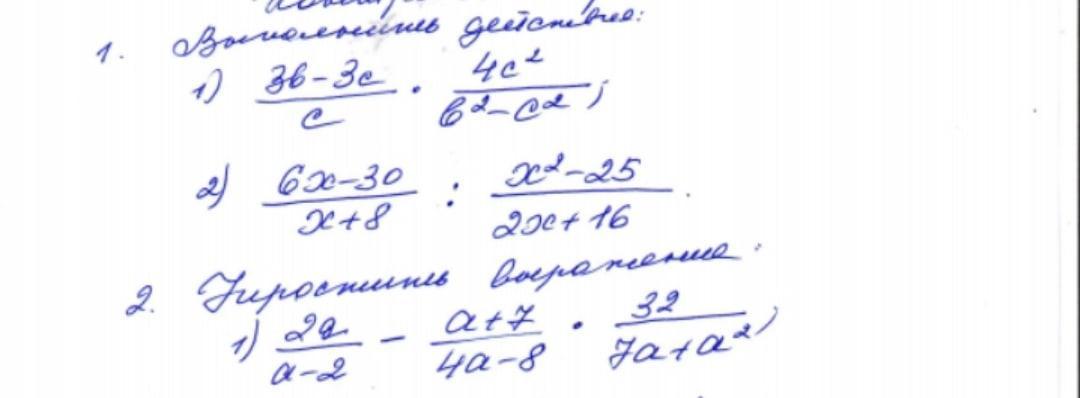 1. Выполнить действие:
1) (3b-3c)/c · 4c²/(b²-c²);
2) (6x-30)/(x+8) : (x²-25)/(2x+16).
2. Упростить выражение:
1) 2a/(a-2) - (a+7)/(4a-8) · 32/(7a+a²);